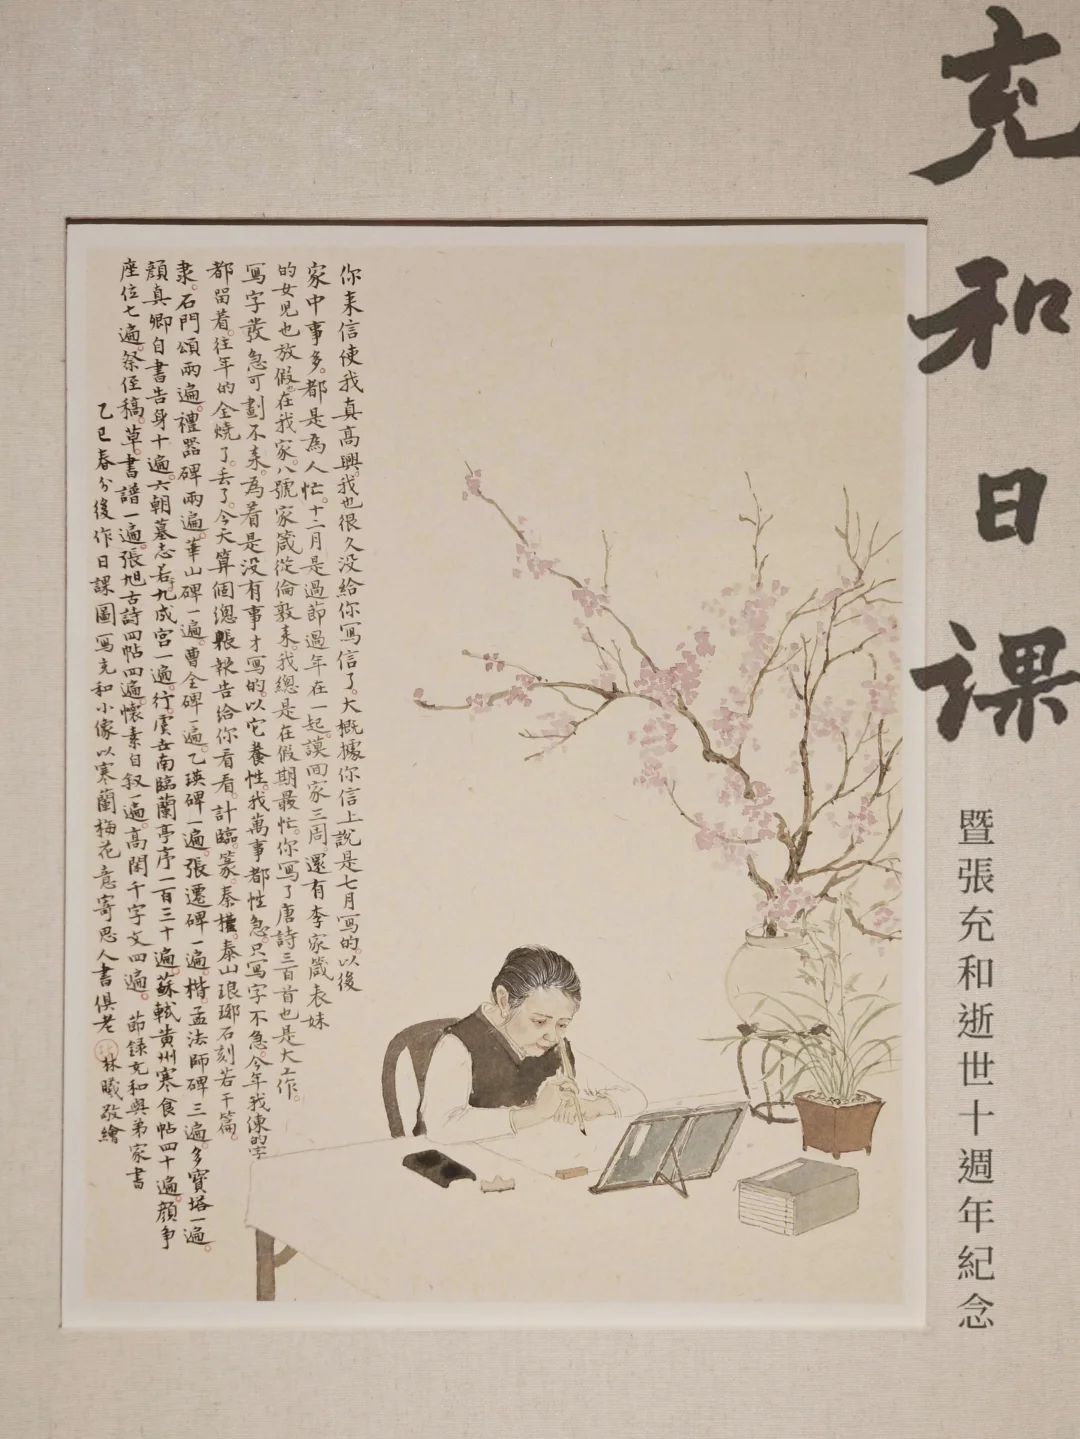 充和日課
暨張充和逝世十週年紀念
你来信使我真高興。我也很久没給你寫信了。大概據你信上說是七月寫的。以後
家中事多。都是為人忙。十二月是過節過年在一起。謨回家三周。還有李家箴表妹
的女児也放假。在我家。八號家箴從倫敦来。我總是在假期最忙。你寫了唐詩三百首也是大工作。
寫字發急可劃不来。為着是没有事才寫的。以它養性。我萬事都性急。只寫字不急。今年我練的字
都留着。往年的全燒了。丢了。今天算個總賬報告給你看看。計臨。篆。秦權。泰山琅琊石刻若干篇。
隶。石門頌兩遍。禮器碑兩遍。華山碑一遍。曹全碑一遍。乙瑛碑一遍。張遷碑一遍。楷。孟法師碑三遍。多寶塔一遍。
顔真卿自書告身十遍。六朝墓志若。九成宫一遍。行。虞世南臨蘭亭序一百三十遍。蘇軾黄州寒食帖四十遍。顔争
座位七遍。祭侄稿。草。書譜一遍。張旭古詩四帖四遍。懷素自叙一遍。高閑千字文四遍。節録充和與弟家書
乙巳春分後作日課圖寫充和小像以寒蘭梅花意寄思人書俱老 林曦敬繪